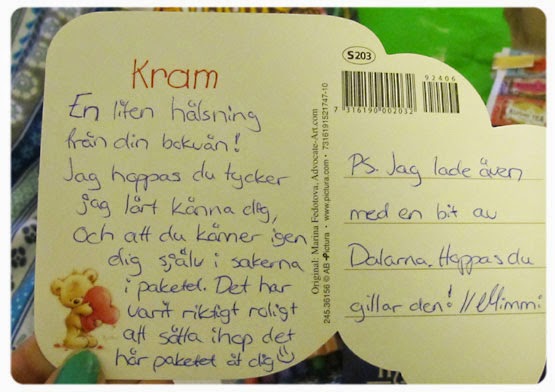 Kram
En liten hälsning
från din bokvän!
Jag hoppas du tycker
jag lärt känna dig,
och att du känner igen
dig själv i sakerna
i paketet. Det har
varit riktigt roligt
att sätta ihop det
här paketet åt dig
Original: Marina Fedotova, Advocate-Art.com
245.36156 © AB Pictura • www.pictura.com • 7316191521747-10
S203
92406
7 316190 002032
PS. Jag lade även
med en bit av
Dalarna. Hoppas du
gillar den! // Mimmi